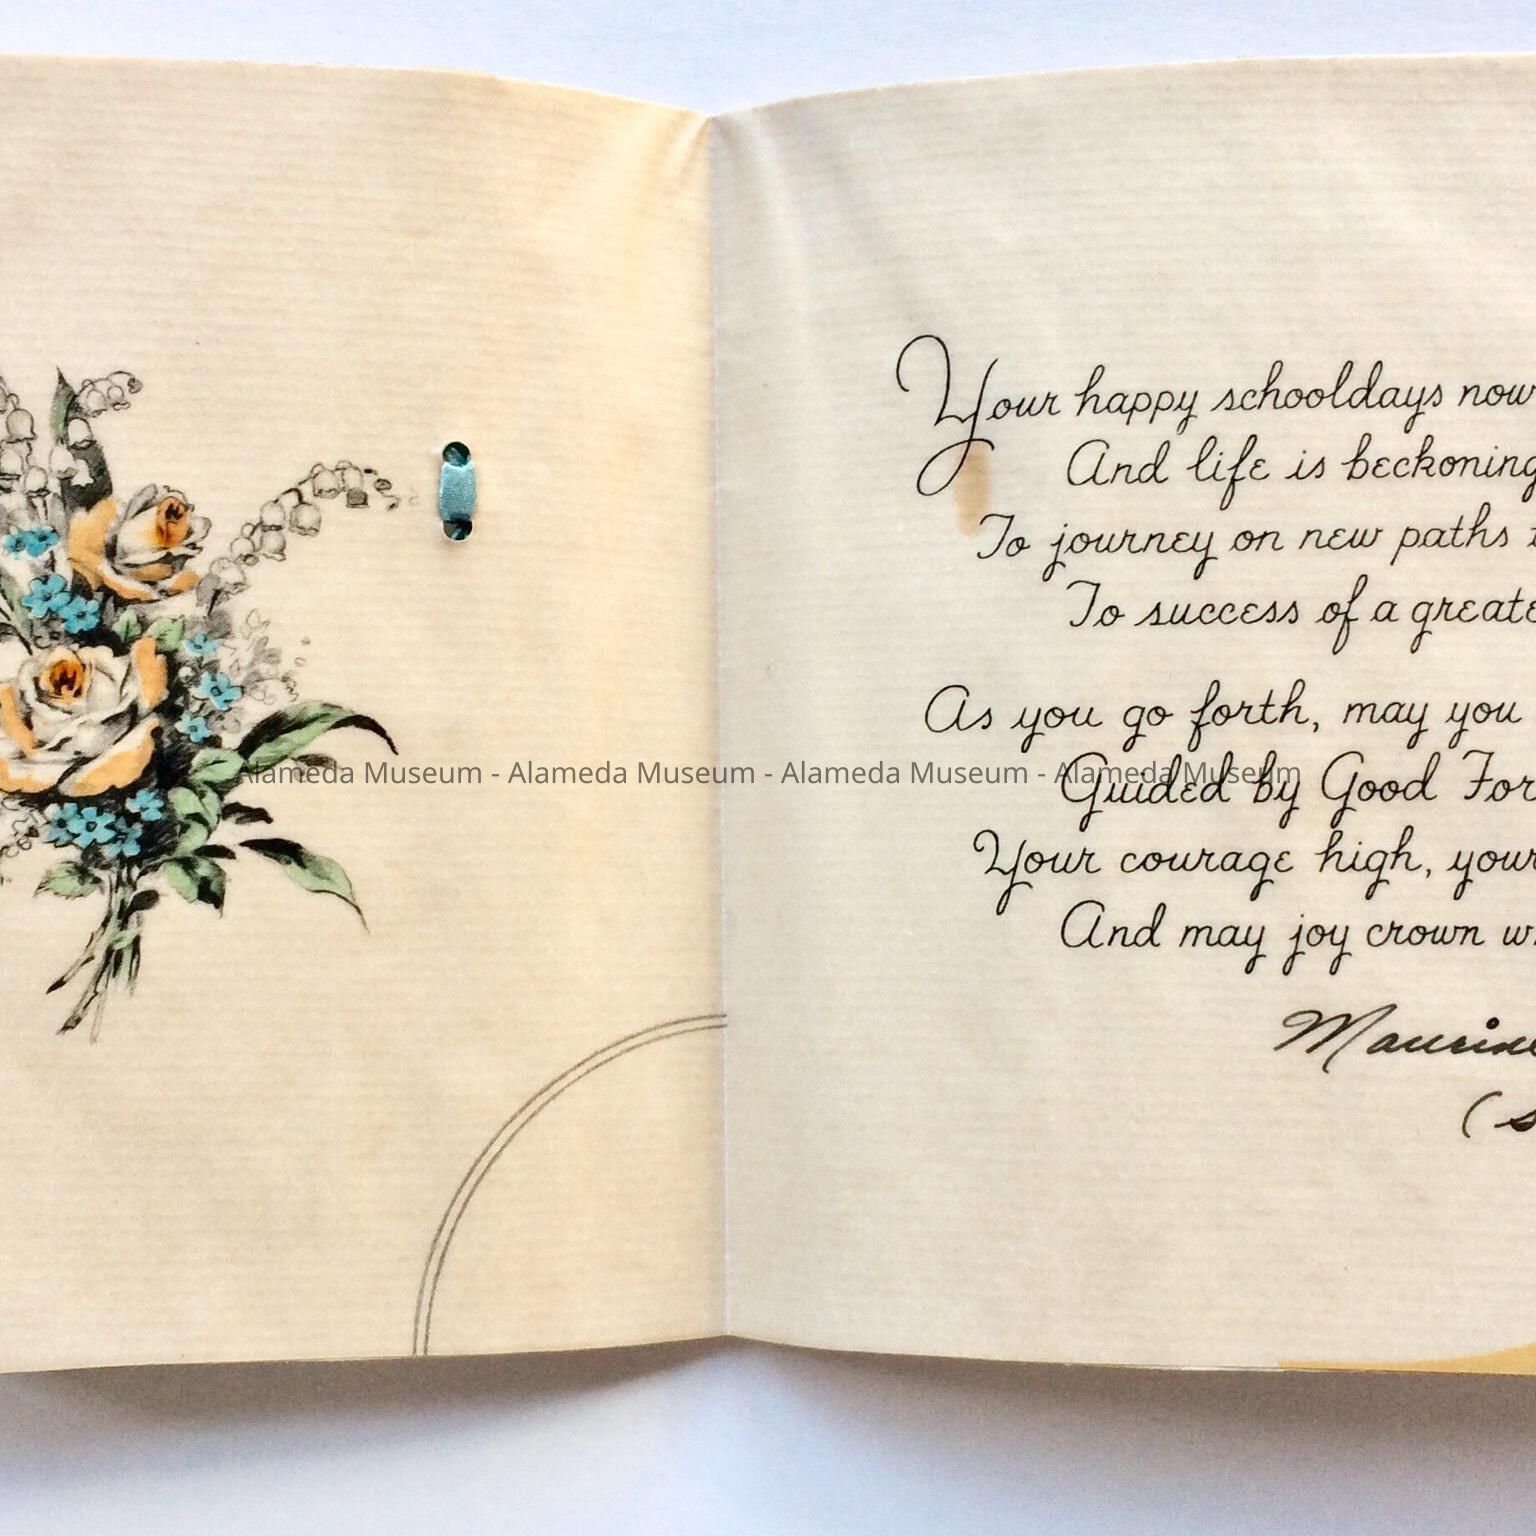 Your happy schooldays now
And life is beckoning
To journey on new paths
To success of a greate
As you go forth, may you
Alameda Museum - Alameda Museum - Alameda Museum - Alameda Museum
Guided by Good For
Your courage high, your
And may joy crown
Maurine
(s